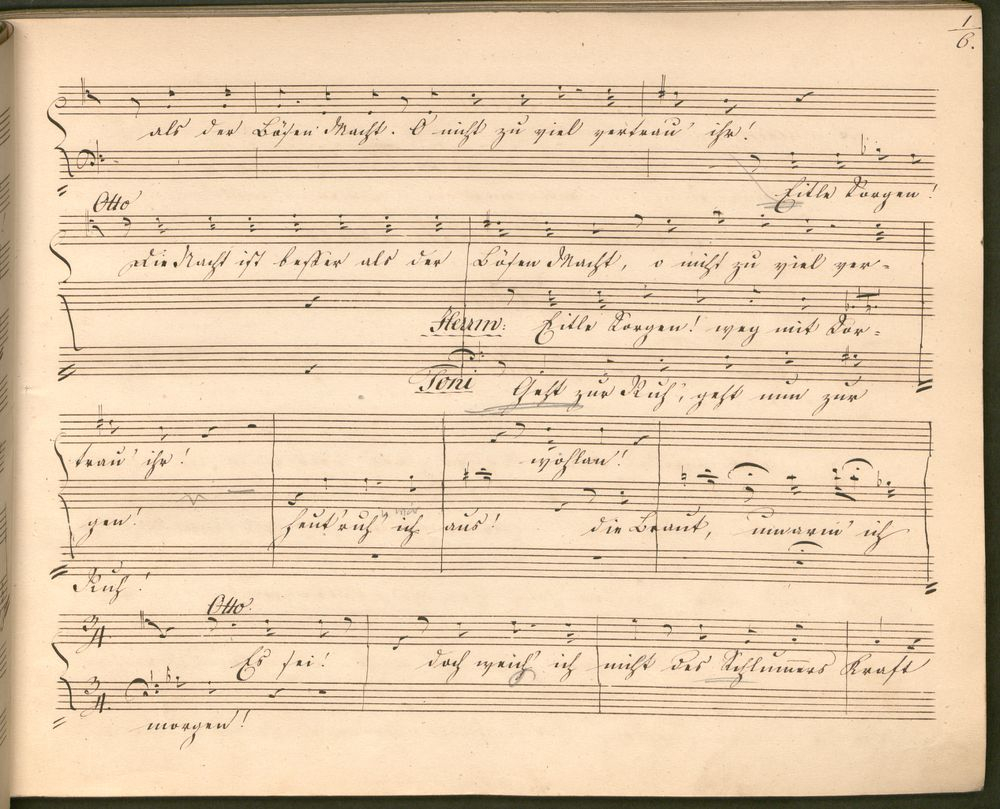 1/6.
als der Bösen Macht. O nicht zu viel vertrau' ihr!
Eitle Sorgen!
Otto
Die Nacht ist besser als der Bösen Macht, o nicht zu viel ver-
Herrm: Eitle Sorgen! weg mit Sor-
Toni Geht zur Ruh', geht nun zur
trau' ihr! wohlan!
gen! heut' ruh' ich aus! die Braut, umarm' ich
Ruh'!
3/4 Otto.
Es sei! doch weich' ich nicht des Schlummers Kraft
3/4.
morgen!